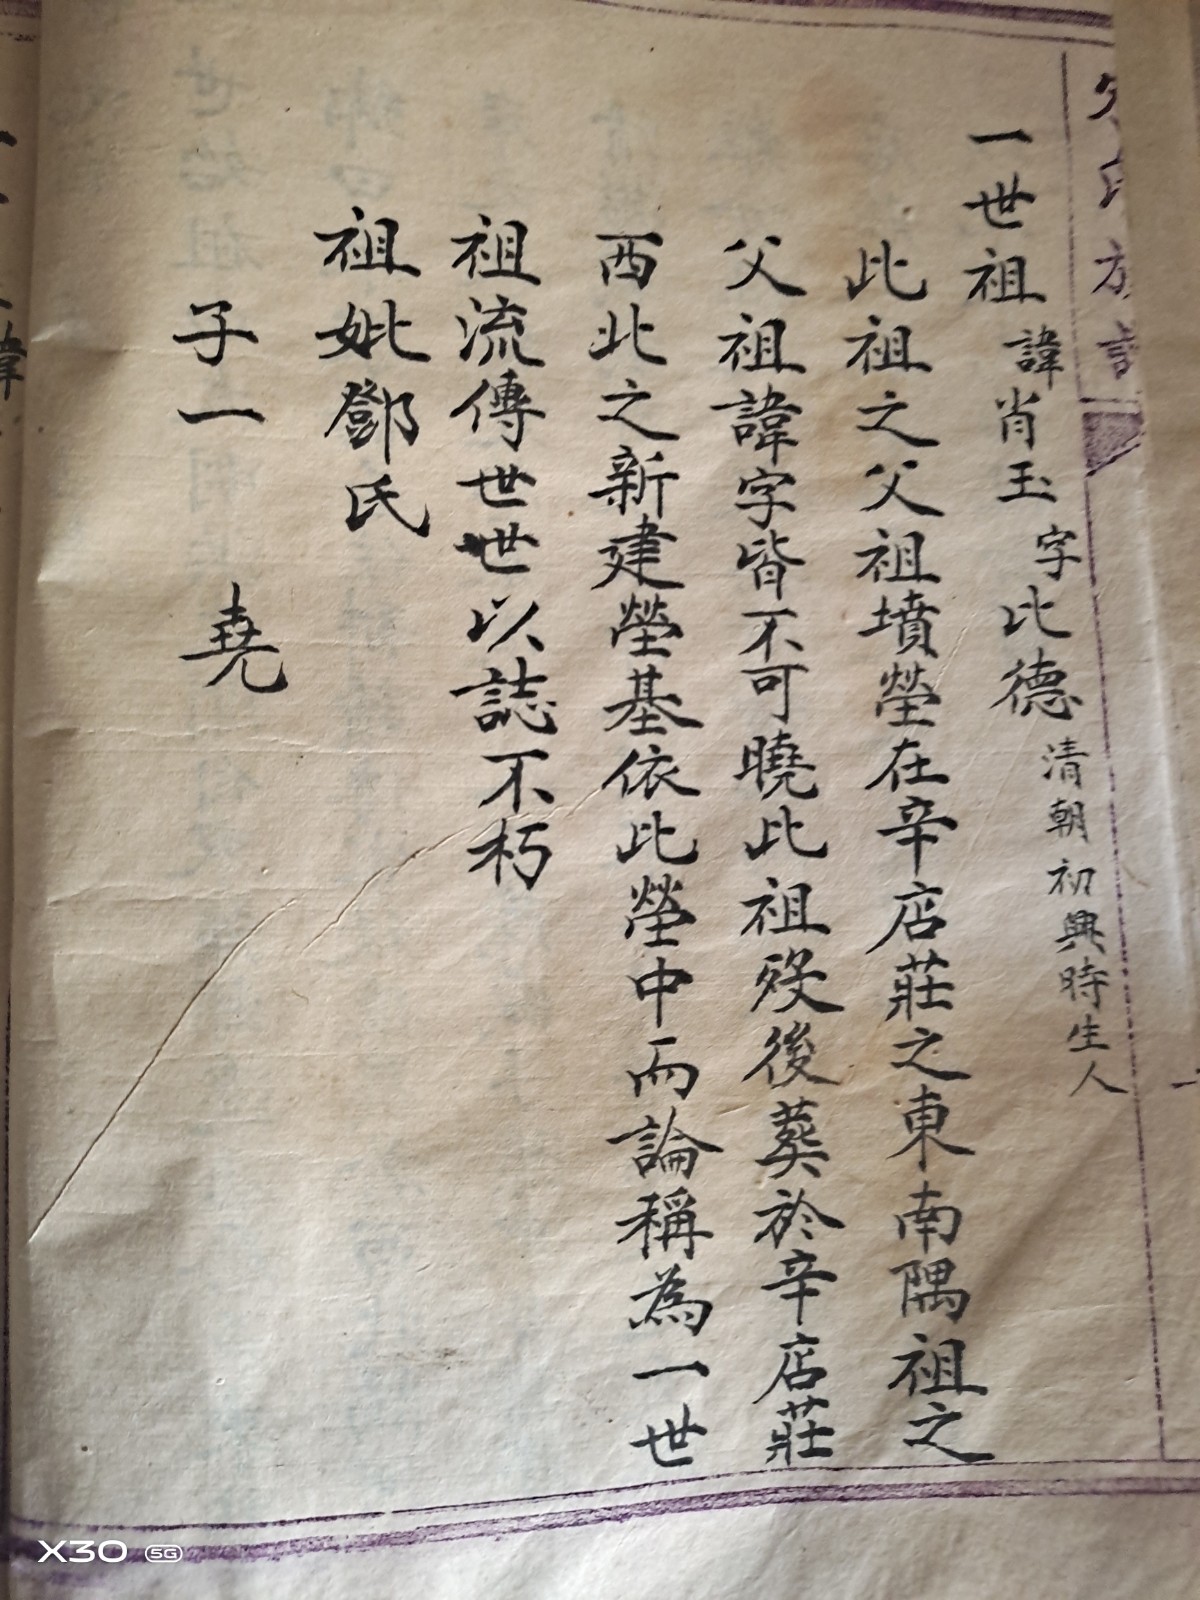 族譜
一世祖 諱肖玉 字比德 清朝初興時生人
此祖之父祖墳塋在辛店莊之東南隅祖之
父祖諱字皆不可曉此祖歿後葬於辛店莊
西北之新建塋基依此塋中而論稱為一世
祖流傳世世以誌不朽
祖妣鄧氏
子一 堯
諱
X30 5G